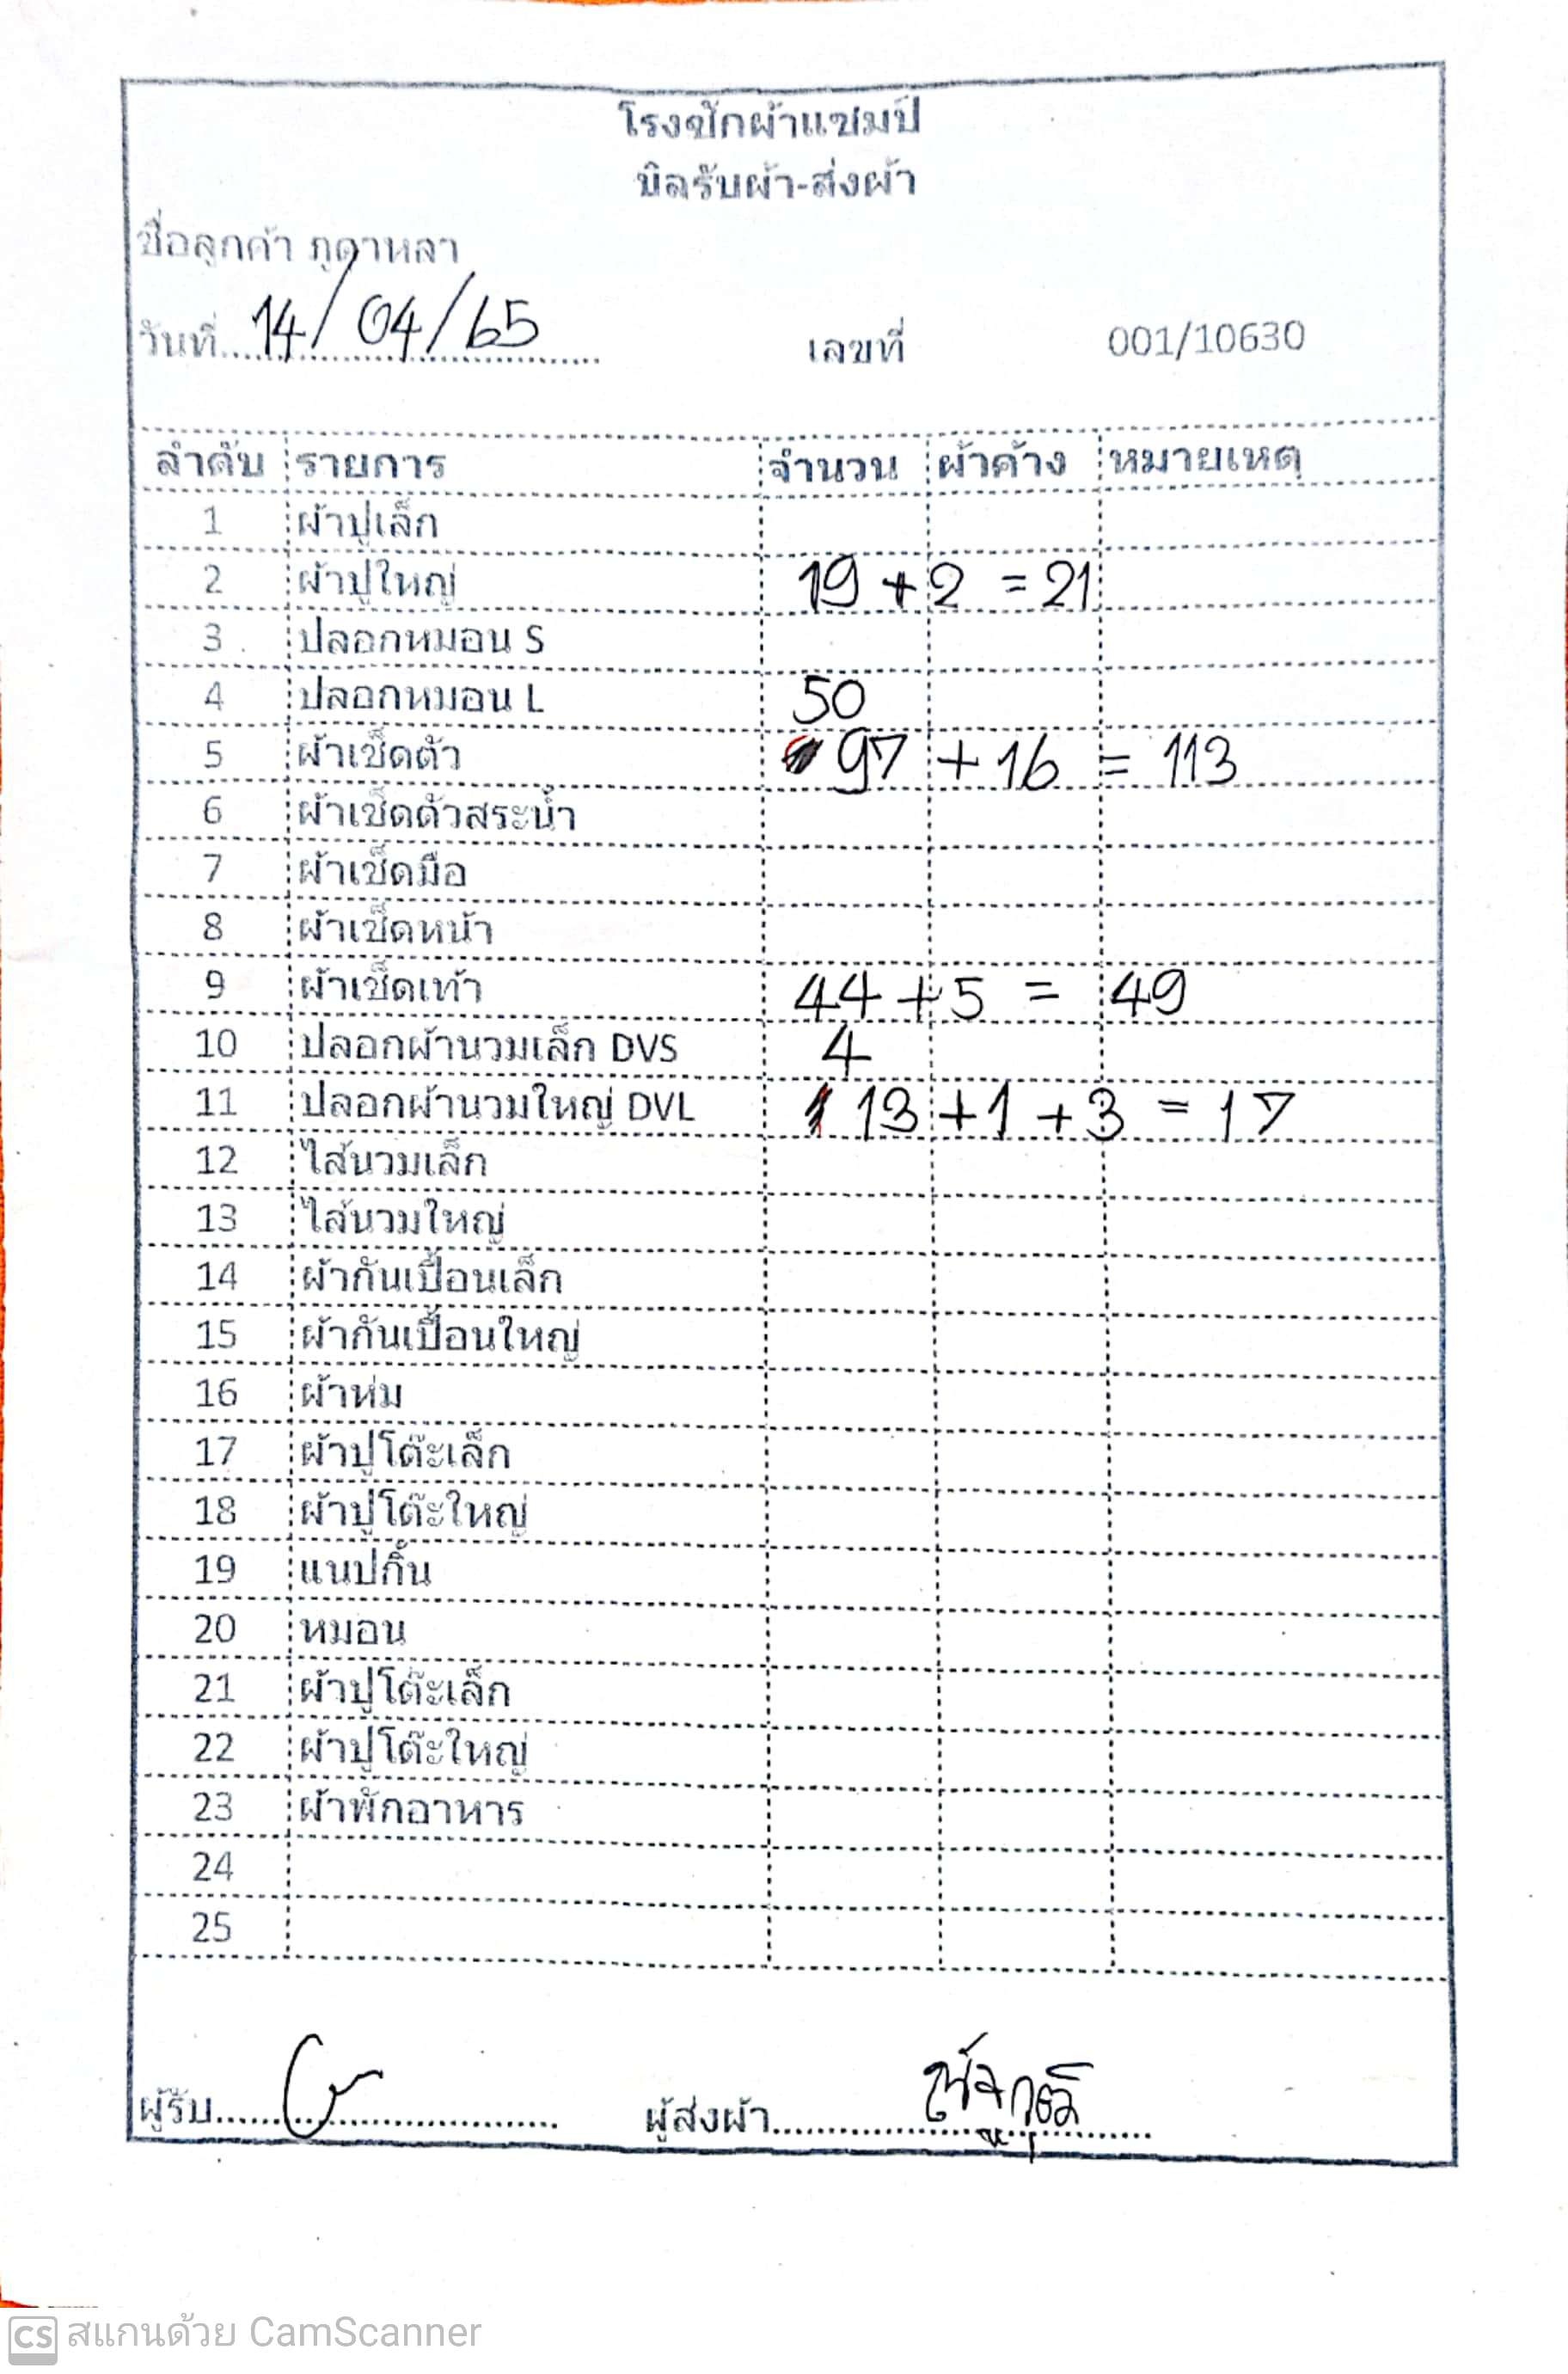 โรงซักผ้าแชมป์
บิลรับผ้า-ส่งผ้า
ชื่อลูกค้า ภูดาหลา
วันที่ 14/04/65 เลขที่ 001/10630
ลำดับ รายการ จำนวน ผ้าค้าง หมายเหตุ
1 ผ้าปูเล็ก
2 ผ้าปูใหญ่ 19 + 2 = 21
3 ปลอกหมอน S
4 ปลอกหมอน L 50
5 ผ้าเช็ดตัว 97 + 16 = 113
6 ผ้าเช็ดตัวสระน้ำ
7 ผ้าเช็ดมือ
8 ผ้าเช็ดหน้า
9 ผ้าเช็ดเท้า 44 + 5 = 49
10 ปลอกผ้านวมเล็ก DVS 4
11 ปลอกผ้านวมใหญ่ DVL 13 + 1 + 3 = 17
12 ไส้นวมเล็ก
13 ไส้นวมใหญ่
14 ผ้ากันเปื้อนเล็ก
15 ผ้ากันเปื้อนใหญ่
16 ผ้าห่ม
17 ผ้าปูโต๊ะเล็ก
18 ผ้าปูโต๊ะใหญ่
19 แนปกิ้น
20 หมอน
21 ผ้าปูโต๊ะเล็ก
22 ผ้าปูโต๊ะใหญ่
23 ผ้าพักอาหาร
24
25
ผู้รับ ผู้ส่งผ้า
CS สแกนด้วย CamScanner